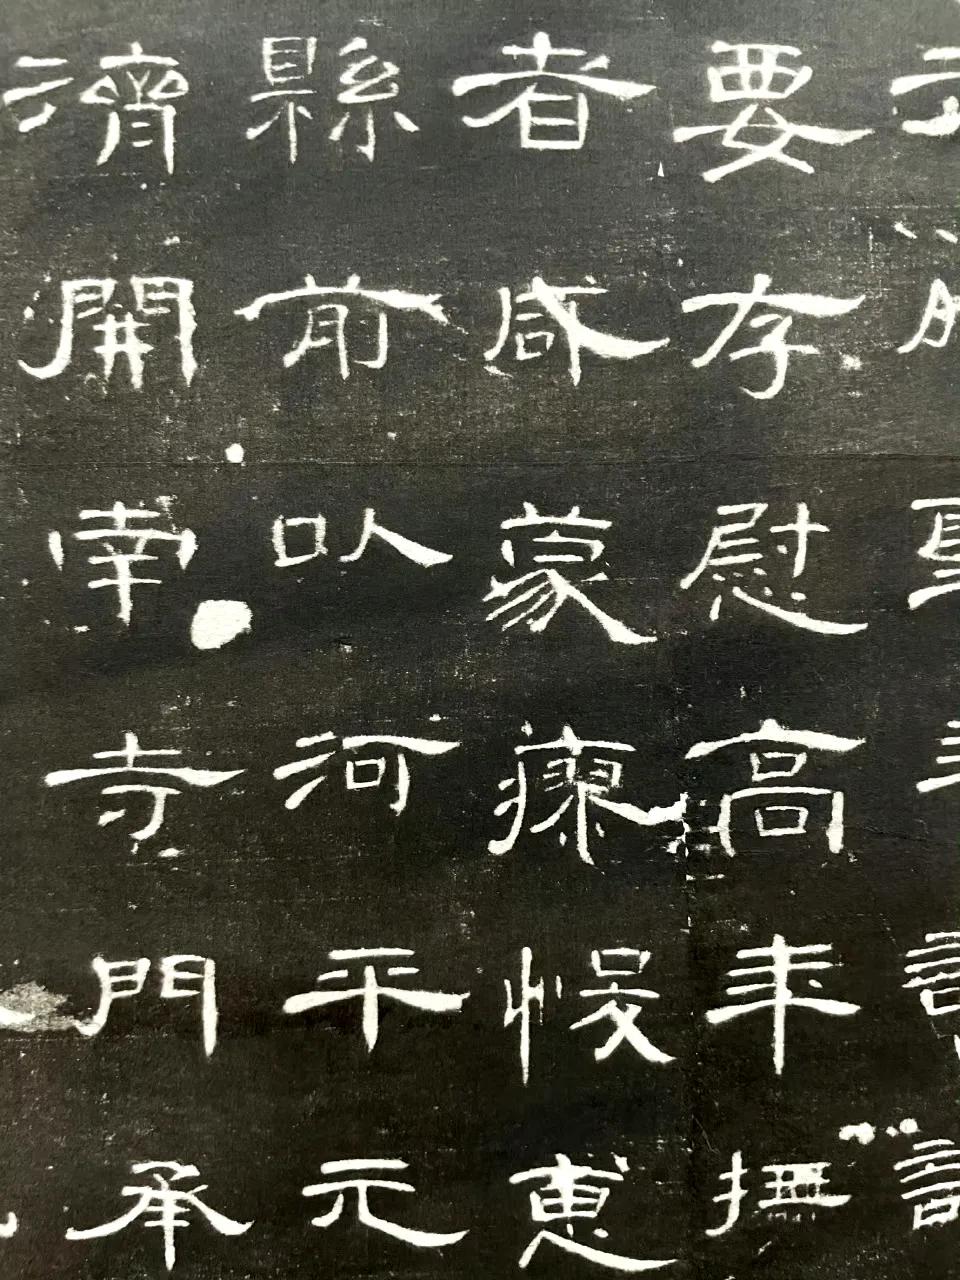 要存慰高年撫
者咸蒙瘳悛惠
縣前以河平元
濟開南寺門承